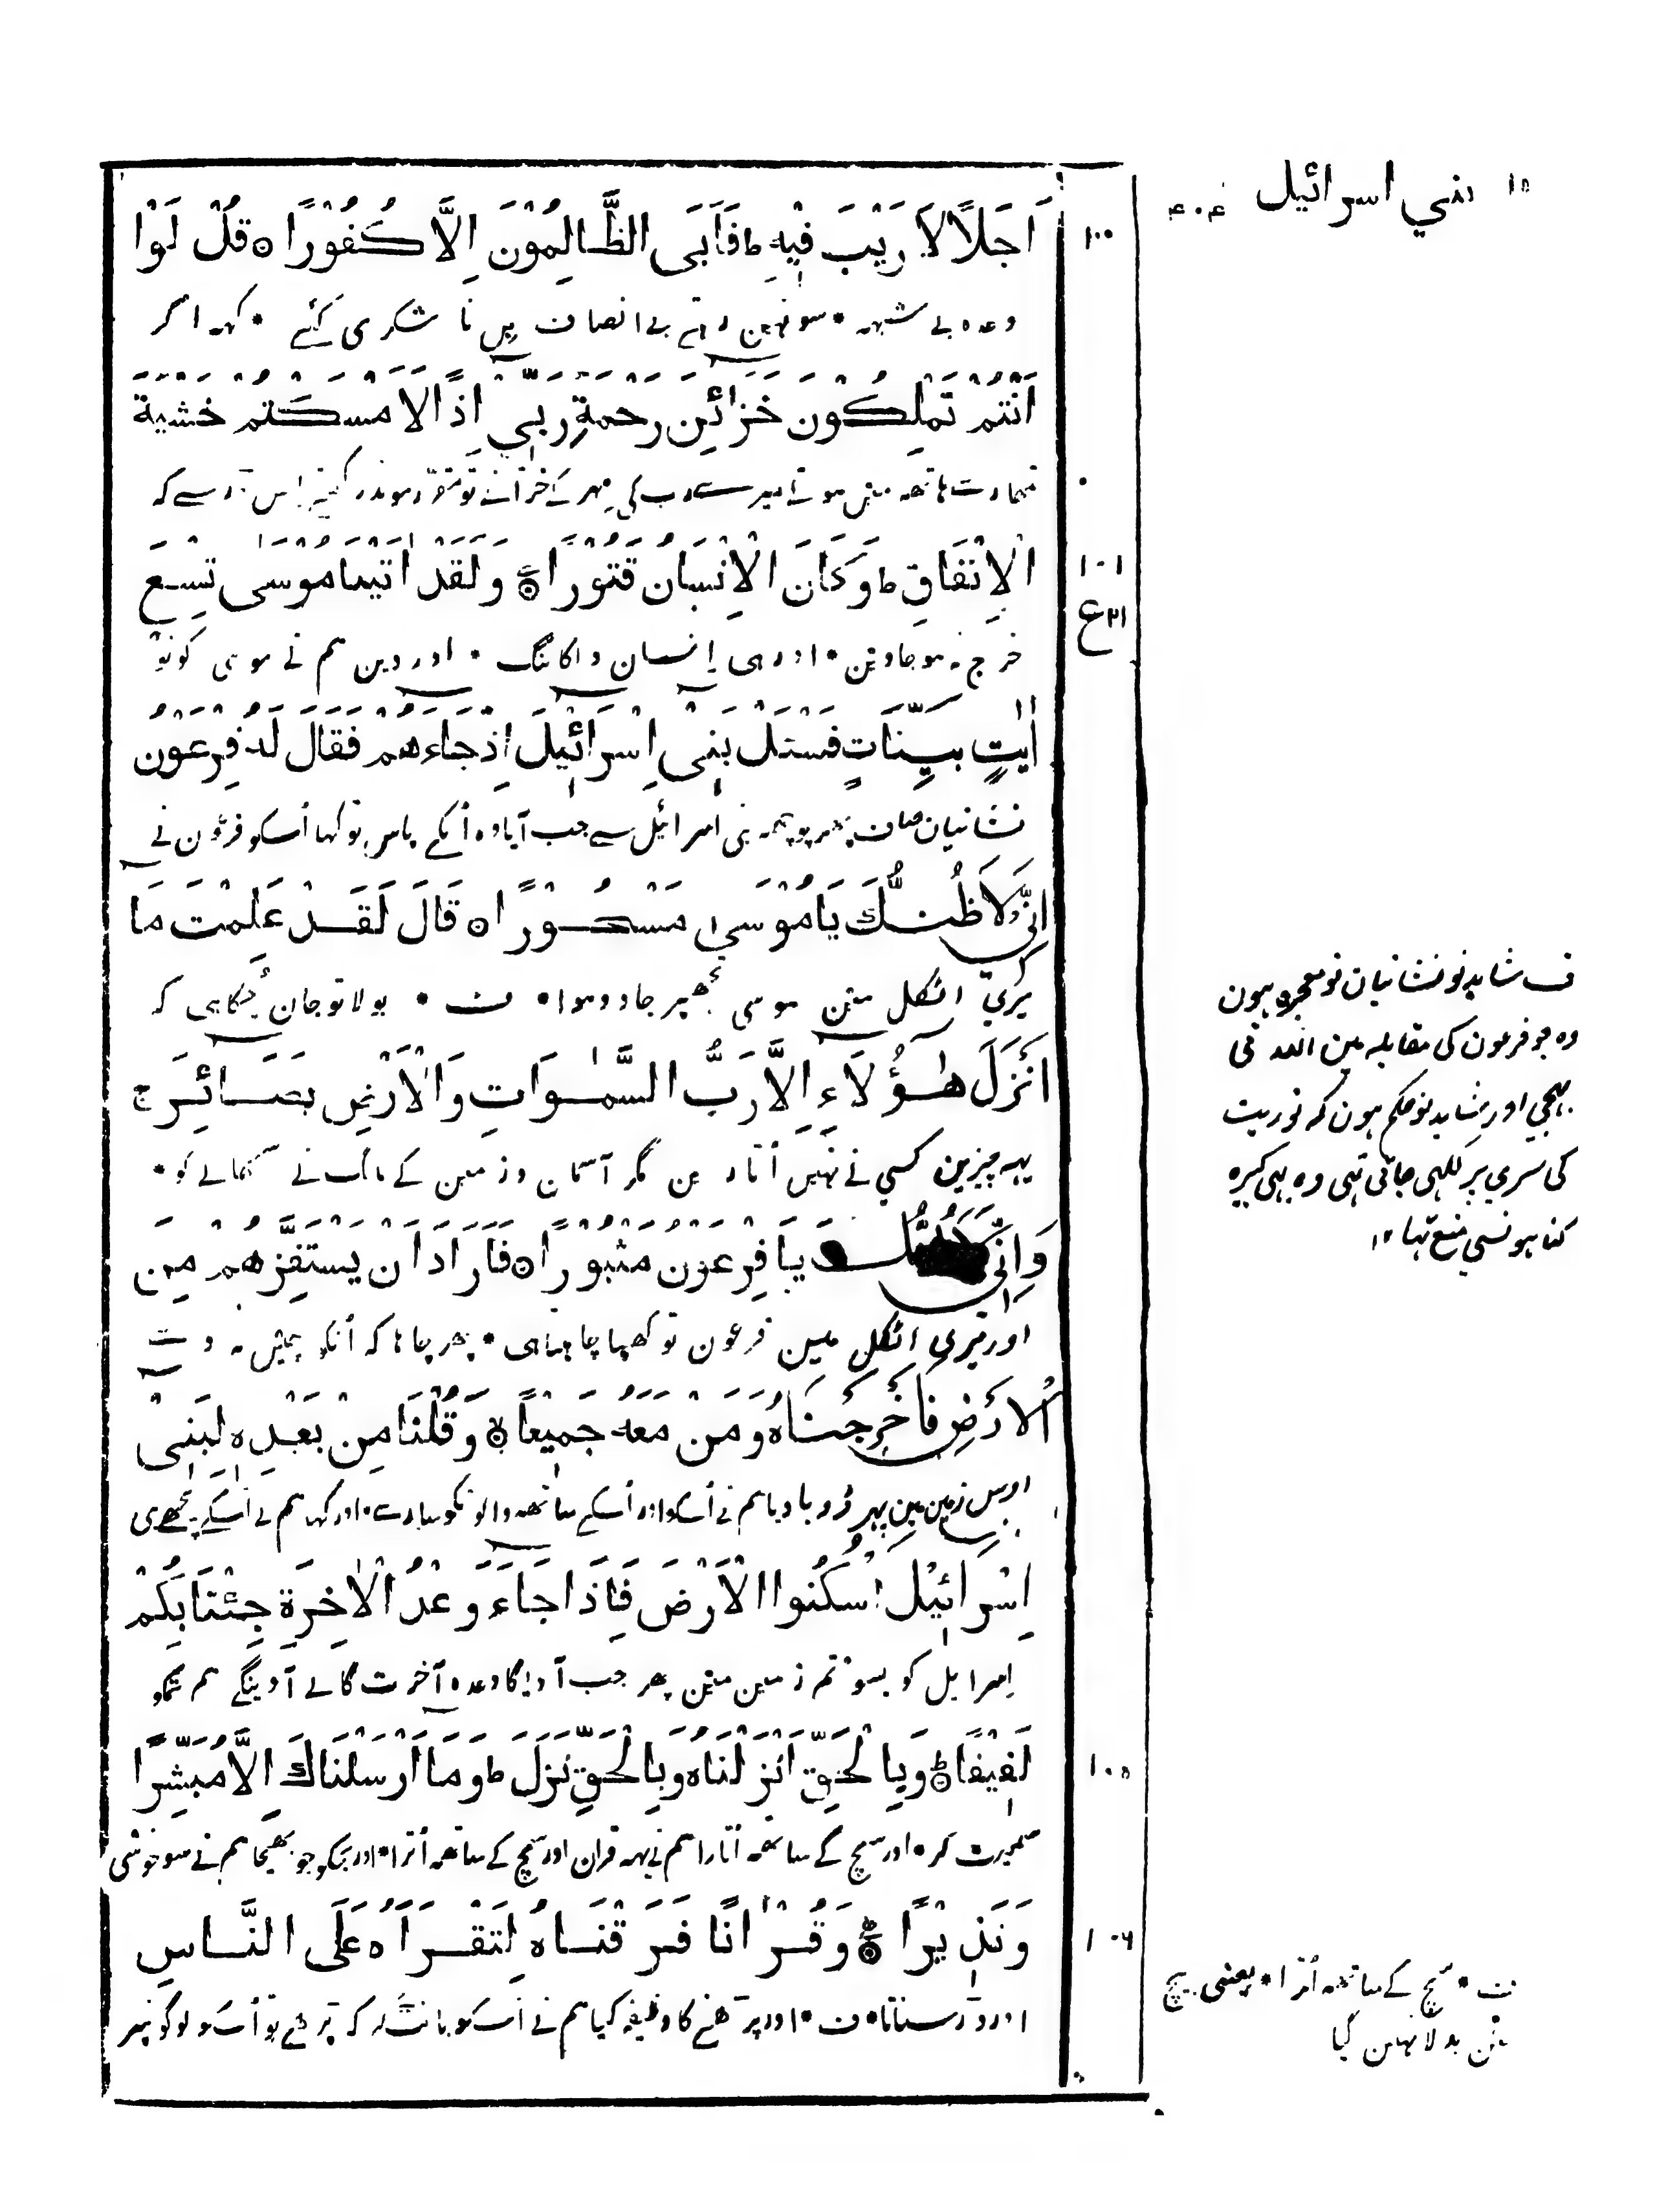 ١٥ بني اسرائيل ٤٠٤
اَجَلًا لَا رَيْبَ فِيْهِ ط فَاَبَى الظَّالِمُوْنَ اِلَّا كُفُوْرًا ۝ قُلْ لَوْا
١٠٠
وعده بے شبهہ • سو نہین رہتے بے انصاف بِن نا شکری کئے • کہہ اگر
اَنْتُمْ تَمْلِكُوْنَ خَزَائِنَ رَحْمَةِ رَبِّيْ اِذًا لَاَمْسَكْتُمْ خَشْيَةَ
تمھارے ہاتھہ مین ہوتے میرے رب کی مہر کے خزانے تو مقرر موندر کھتے اس ڈر سے کہ
الْاِنْفَاقِ ط وَكَانَ الْاِنْسَانُ قَتُوْرًا ۝ وَلَقَدْ اٰتَيْنَا مُوْسٰى تِسْعَ
١٠١
ع ٢١
خرچ نہ ہو جاوین • اور ہی اِنسان دلکا تنگ • اور دین ہم نے موسی کو نَو
اٰيٰتٍ بَيِّنَاتٍ فَسْئَلْ بَنِىْ اِسْرَائِيْلَ اِذْ جَاءَهُمْ فَقَالَ لَهُ فِرْعَوْنُ
نشانیان صاف پھر پوچھہ بنی اسرائیل سے جب آیا وہ اُنکے پاس تو کہا اُسکو فرعون نے
اِنِّيْ لَاَظُنُّكَ يَا مُوْسٰى مَسْحُوْرًا ۝ قَالَ لَقَدْ عَلِمْتَ مَا
میری اٹکل مین موسی تجھپر جادو ہوا • ف • بولا تو جان چُکا ہی کہ
اَنْزَلَ هٰؤُلَاءِ اِلَّا رَبُّ السَّمٰوَاتِ وَالْاَرْضِ بَصَائِرَ ج
یہہ چیزین کسي نے نہین اُتارین مگر آسمان و زمین کے مالک نے سمجھانے کو •
وَاِنِّيْ يَا فِرْعَوْنُ مَثْبُوْرًا ۝ فَاَرَادَ اَنْ يَسْتَفِزَّهُمْ مِنَ
اور تیری اٹکل مین فرعون تو کھپا چاہتا ہی • پھر چاہا کہ اُنکو چین نہ دے
الْاَرْضِ فَاَخْرَجْنَاهُ وَمَنْ مَعَهُ جَمِيْعًا ۝ وَقُلْنَا مِنْ بَعْدِهٖ لِبَنِىْ
اوس زمین مین پہر ڈوبا دیا ہم نے اُسکو اور اُسکے ساتھہ والونکو سارے • اور کہا ہم نے اُسکے پچھے ی
اِسْرَائِيْلَ اسْكُنُوا الْاَرْضَ فَاِذَا جَاءَ وَعْدُ الْاٰخِرَةِ جِئْنَا بِكُمْ
اِسرایل کو بسو تم زمین مین پھر جب آویگا وعدہ آخرت کا لے آوینگے ہم تمکو
لَفِيْفًا ۝ وَبِالْحَقِّ اَنْزَلْنَاهُ وَبِالْحَقِّ نَزَلَ ط وَمَا اَرْسَلْنَاكَ اِلَّا مُبَشِّرًا
١٠٥
سمیت کر • اور سچ کے ساتھہ اُتارا ہم نے یہہ قران اور سچ کے ساتھہ اُترا • اور تجکو جو بھیجا ہم نے سو خوشی
وَنَذِيْرًا ۝ وَقُرْاٰنًا فَرَقْنَاهُ لِتَقْرَاَهُ عَلَى النَّاسِ
١٠٦
اور ڈر سناتا • ف • اور پڑھنے کا وظیفہ کیا ہم نے اُسکو بانٹ کر کہ پڑھے تو اُسکو لوگونپر
ف شاید نو نشانیان نو معجزہ ہون
وہ جو فرعون کی مقابلہ مین اللہ نی
بہیجي اور شاید نو حکم ہون کہ توریت
کی سري پر لکہی جاتی تہی وہ بہی کبیرہ
گناہونسی منع تہا ١٢
ف • سچ کے ساتھہ اُترا • یعنی بیچ
مین بدلا نہین گیا